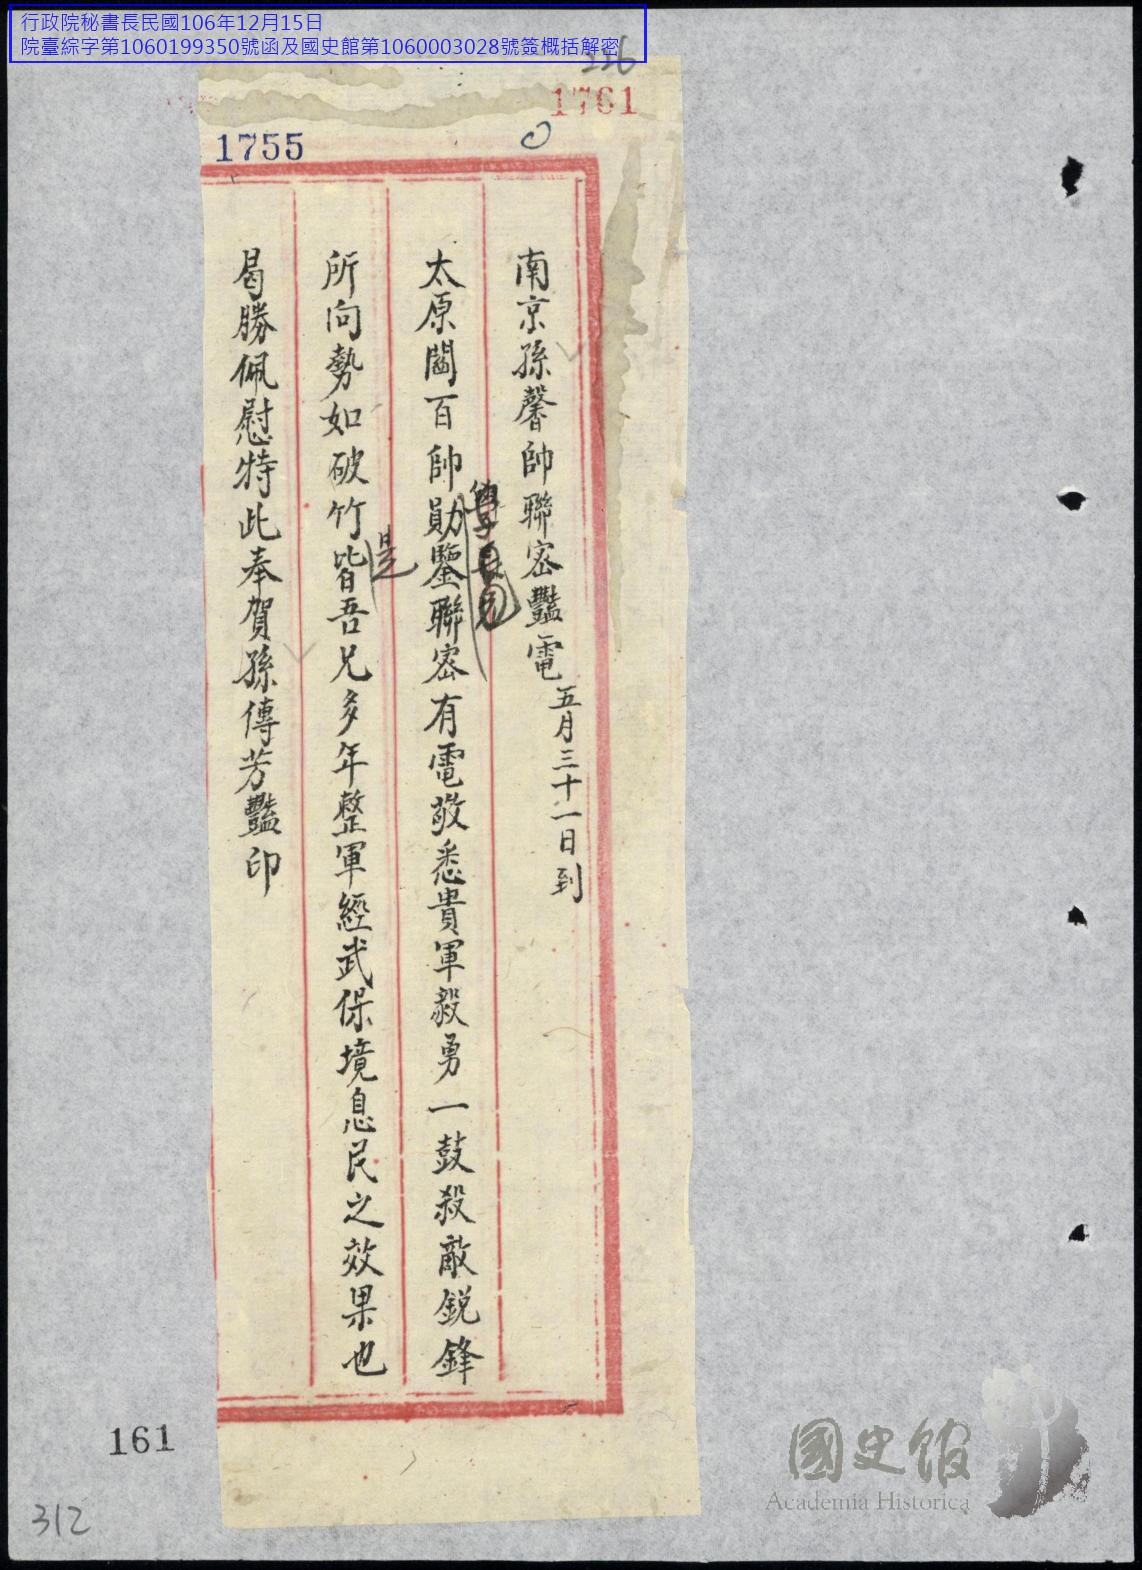 行政院秘書長民國106年12月15日
院臺綜字第1060199350號函及國史館第1060003028號簽概括解密
226
1761
1755
南京孫馨帥聯密豔電五月三十一日到
太原閻百帥勛鑒聯密有電敬悉貴軍毅勇一鼓殺敵銳鋒
所向勢如破竹皆吾兄多年整軍經武保境息民之效果也
是
曷勝佩慰特此奉賀孫傳芳豔印
161
312
國史館
Academia Historica